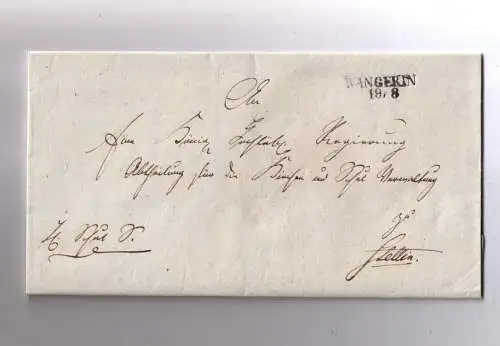 WANGERIN
19/8
An
Eine König Hochlöbl. Regierung
Abtheilung für die Kirchen und Schul Verwaltung
zu
Stettin.
Schul S.